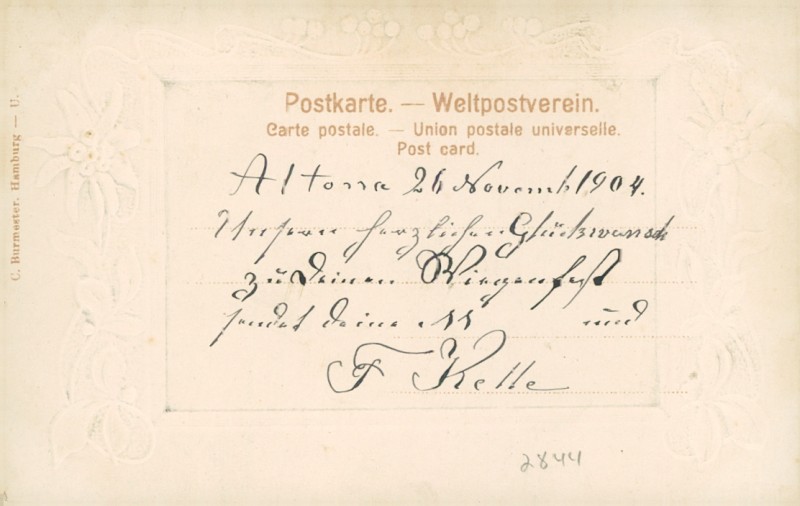 Postkarte. — Weltpostverein.
Carte postale. — Union postale universelle.
Post card.
Altona 26 Novemb 1904.
Unsern herzlichen Glückwunsch
zu deinen Wiegenfest
sendet deine und
F Kelle
2844
C. Burmester, Hamburg — U.